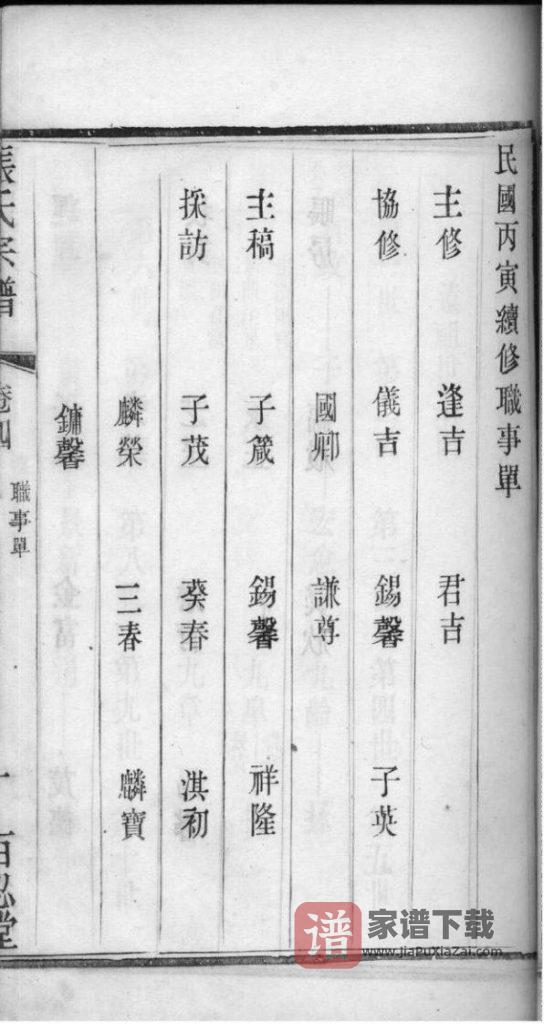 民國丙寅續修職事單
主修 逢吉 君吉
協修 儀吉 錫馨 子英
國卿 謙尊
主稿 子箴 錫馨 祥隆
採訪 子茂 癸春 淇初
麟榮 三春 麟寶
鏞馨
張氏宗譜 卷四 職事單 百忍堂
谱 家谱下载
www.jiaPuXiaZai.com